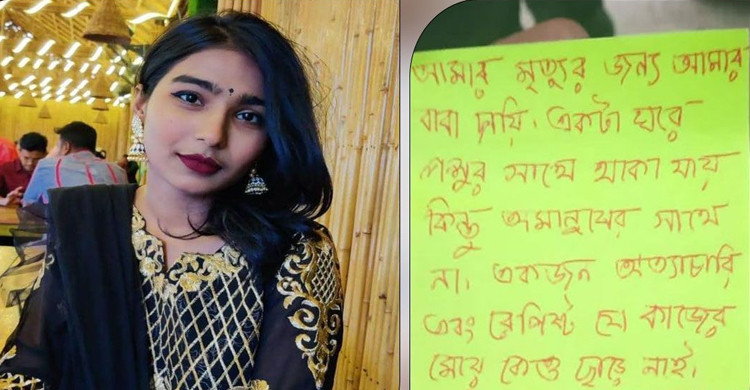 আমার মৃত্যুর জন্য আমার
বাবা দায়ি। একটা ঘরে
পশুর সাথে থাকা যায়
কিন্তু অমানুষের সাথে
না। একজন অত্যাচারি
এবং রেপিষ্ট যে কাজের
মেয়ে কেও ছাড়ে নাই।